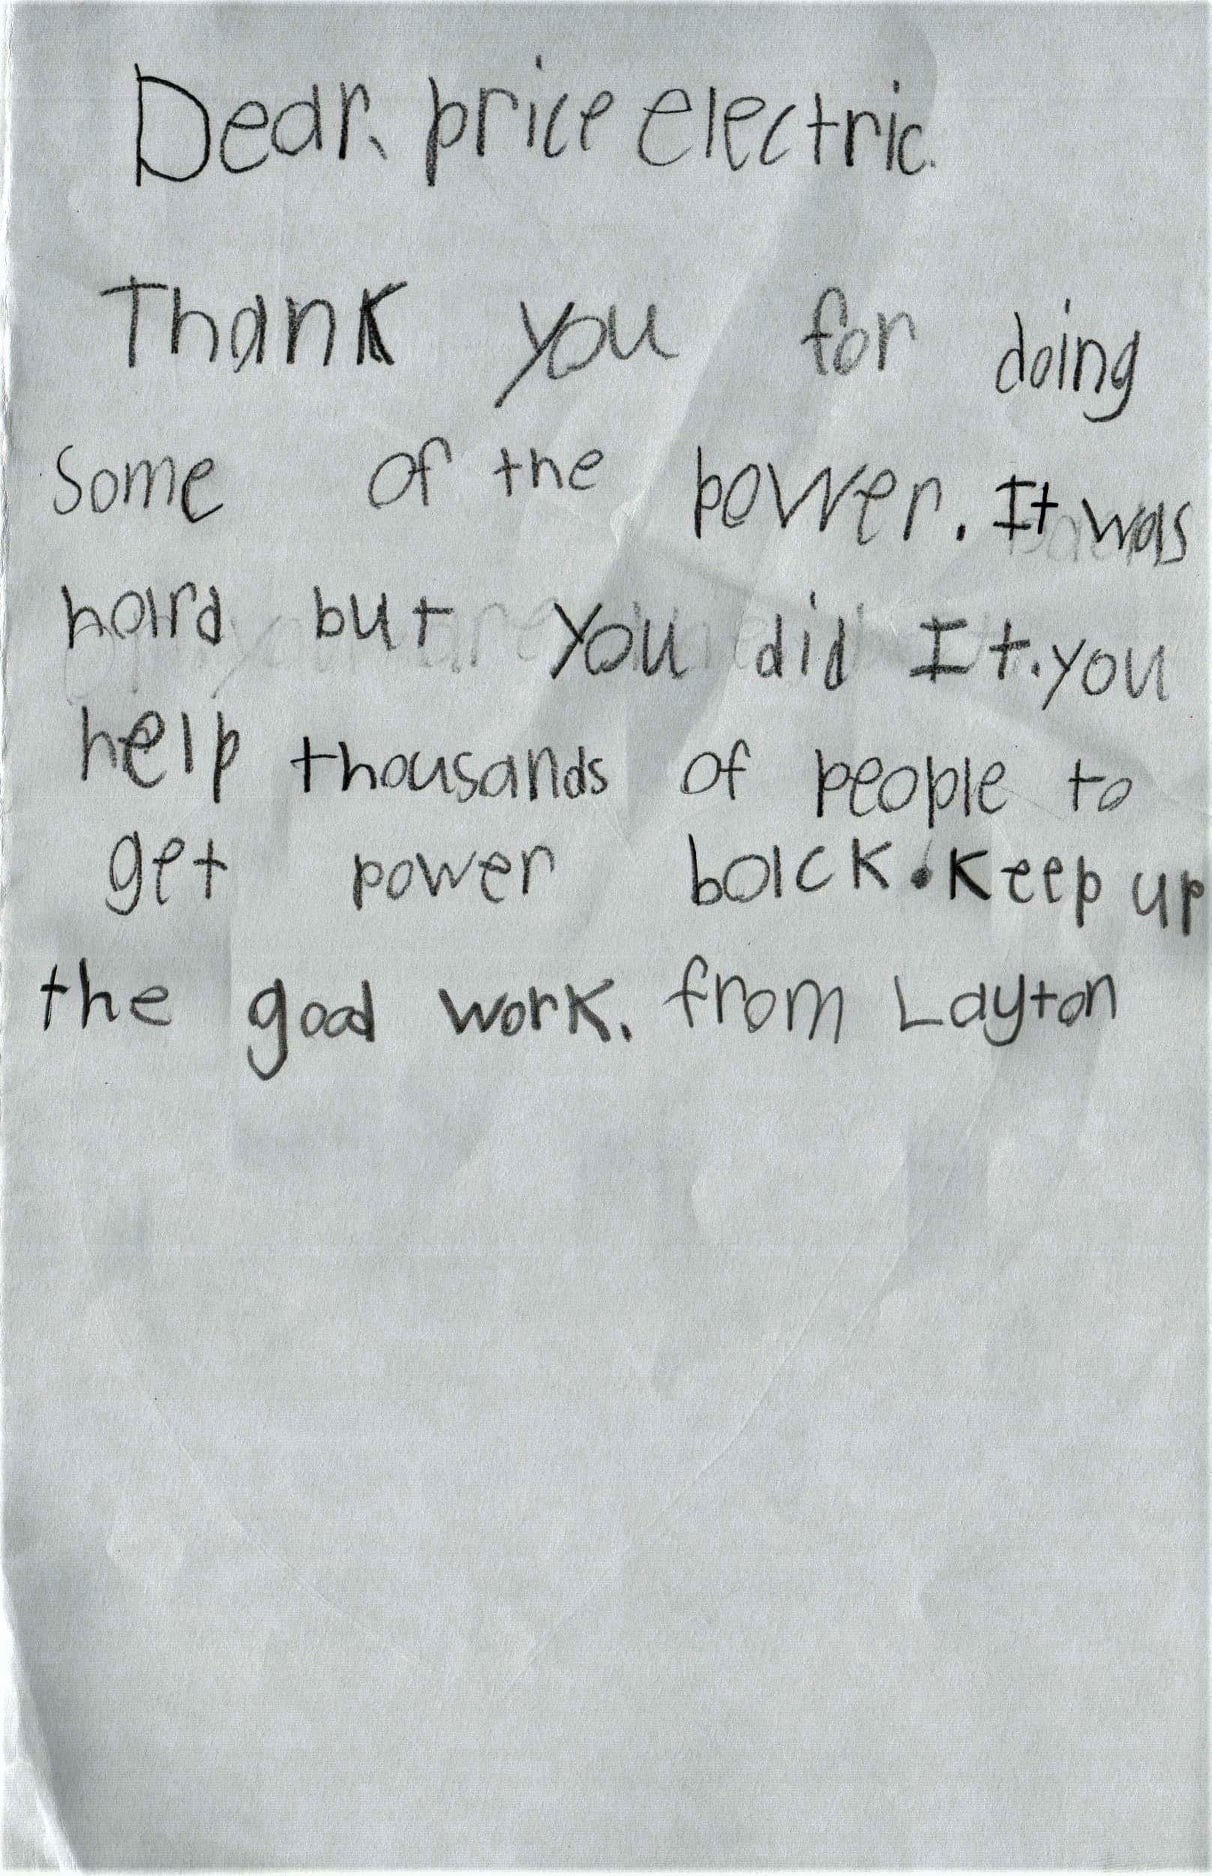 Dear, price electric.
Thank you for doing
some of the power. It was
hard but you did It. you
help thousands of people to
get power back. Keep up
the good work. from Layton